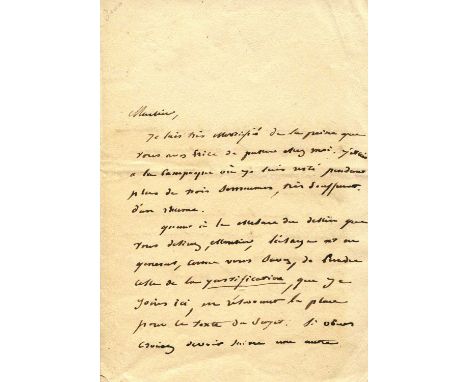 Monsieur,
Je suis très mortifié de la peine que
vous avez prise de passer chez moi. j'étais
à la campagne où je suis resté pendant
plus de trois semaines, très souffrant
d'un rhume.
quant à la mesure du dessin que
vous désirez, Monsieur, l'usage est en
général, comme vous savez, de prendre
celle de la justification, que je
joins ici, en réservant la place
pour le texte du sujet. Si vous
croyez devoir suivre une autre